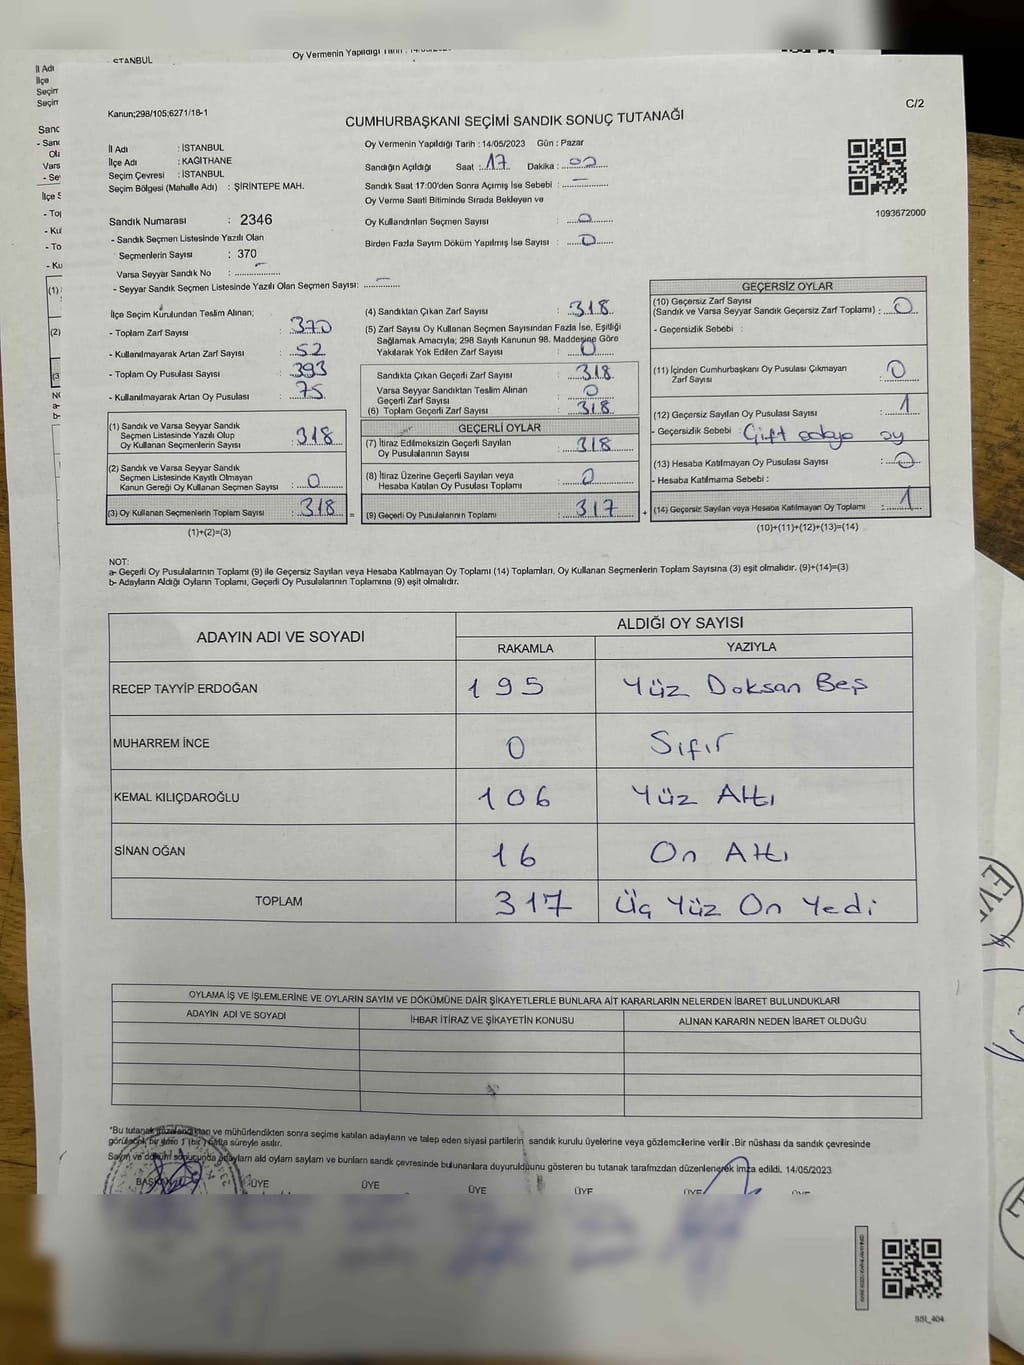 STANBUL
Oy Vermenin Yapıldığı Tarih : 14/05/2023
İl Adı
İlçe
Seçim
Seçim
Kanun;298/105;6271/18-1
C/2
CUMHURBAŞKANI SEÇİMİ SANDIK SONUÇ TUTANAĞI
İl Adı : İSTANBUL
İlçe Adı : KAĞITHANE
Seçim Çevresi : İSTANBUL
Seçim Bölgesi (Mahalle Adı) : ŞİRİNTEPE MAH.
Oy Vermenin Yapıldığı Tarih : 14/05/2023 Gün : Pazar
Sandığın Açıldığı Saat : 17 Dakika : 00
Sandık Saat 17:00'den Sonra Açımış İse Sebebi : –
Oy Verme Saati Bitiminde Sırada Bekleyen ve
Oy Kullandırılan Seçmen Sayısı : 0
Birden Fazla Sayım Döküm Yapılmış İse Sayısı : 0
1093672000
Sandık Numarası : 2346
- Sandık Seçmen Listesinde Yazılı Olan
Seçmenlerin Sayısı : 370
Varsa Seyyar Sandık No : –
- Seyyar Sandık Seçmen Listesinde Yazılı Olan Seçmen Sayısı: –
İlçe Seçim Kurulundan Teslim Alınan;
- Toplam Zarf Sayısı : 370
- Kullanılmayarak Artan Zarf Sayısı : 52
- Toplam Oy Pusulası Sayısı : 393
- Kullanılmayarak Artan Oy Pusulası : 75
(1) Sandık ve Varsa Seyyar Sandık
Seçmen Listesinde Yazılı Olup
Oy Kullanan Seçmenlerin Sayısı : 318
(2) Sandık ve Varsa Seyyar Sandık
Seçmen Listesinde Kayıtlı Olmayan
Kanun Gereği Oy Kullanan Seçmen Sayısı : 0
(3) Oy Kullanan Seçmenlerin Toplam Sayısı : 318
(1)+(2)=(3)
(4) Sandıktan Çıkan Zarf Sayısı : 318
(5) Zarf Sayısı Oy Kullanan Seçmen Sayısından Fazla İse, Eşitliği
Sağlamak Amacıyla; 298 Sayılı Kanunun 98. Maddesine Göre
Yakılarak Yok Edilen Zarf Sayısı : 0
Sandıkta Çıkan Geçerli Zarf Sayısı : 318
Varsa Seyyar Sandıktan Teslim Alınan
Geçerli Zarf Sayısı : 0
(6) Toplam Geçerli Zarf Sayısı : 318
GEÇERLİ OYLAR
(7) İtiraz Edilmeksizin Geçerli Sayılan
Oy Pusulalarının Sayısı : 318
(8) İtiraz Üzerine Geçerli Sayılan veya
Hesaba Katılan Oy Pusulası Toplamı : 0
= (9) Geçerli Oy Pusulalarının Toplamı : 317 +
GEÇERSİZ OYLAR
(10) Geçersiz Zarf Sayısı
(Sandık ve Varsa Seyyar Sandık Geçersiz Zarf Toplamı) : 0
- Geçersizlik Sebebi :
(11) İçinden Cumhurbaşkanı Oy Pusulası Çıkmayan
Zarf Sayısı : 0
(12) Geçersiz Sayılan Oy Pusulası Sayısı : 1
- Geçersizlik Sebebi : Çift adaya oy
(13) Hesaba Katılmayan Oy Pusulası Sayısı : 0
- Hesaba Katılmama Sebebi :
(14) Geçersiz Sayılan veya Hesaba Katılmayan Oy Toplamı : 1
(10)+(11)+(12)+(13)=(14)
NOT:
a- Geçerli Oy Pusulalarının Toplamı (9) ile Geçersiz Sayılan veya Hesaba Katılmayan Oy Toplamı (14) Toplamları, Oy Kullanan Seçmenlerin Toplam Sayısına (3) eşit olmalıdır. (9)+(14)=(3)
b- Adayların Aldığı Oyların Toplamı, Geçerli Oy Pusulalarının Toplamına (9) eşit olmalıdır.
ADAYIN ADI VE SOYADI ALDIĞI OY SAYISI
RAKAMLA YAZIYLA
RECEP TAYYİP ERDOĞAN 195 Yüz Doksan Beş
MUHARREM İNCE 0 Sıfır
KEMAL KILIÇDAROĞLU 106 Yüz Altı
SİNAN OĞAN 16 On Altı
TOPLAM 317 Üç Yüz On Yedi
OYLAMA İŞ VE İŞLEMLERİNE VE OYLARIN SAYIM VE DÖKÜMÜNE DAİR ŞİKAYETLERLE BUNLARA AİT KARARLARIN NELERDEN İBARET BULUNDUKLARI
ADAYIN ADI VE SOYADI İHBAR İTİRAZ VE ŞİKAYETİN KONUSU ALINAN KARARIN NEDEN İBARET OLDUĞU
*Bu tutanak imzalandıktan ve mühürlendikten sonra seçime katılan adayların ve talep eden siyasi partilerin sandık kurulu üyelerine veya gözlemcilerine verilir .Bir nüshası da sandık çevresinde
görülecek bir yere 1 (bir) hafta süreyle asılır.
Sayım ve döküm sonucunda adayların ald oyların sayların ve bunların sandk çevresinde bulunanlara duyurulduunu gösteren bu tutanak tarafmzdan düzenlenerek imza edildi. 14/05/2023
BAŞKAN ÜYE ÜYE ÜYE ÜYE ÜYE
EVET
SSI_404